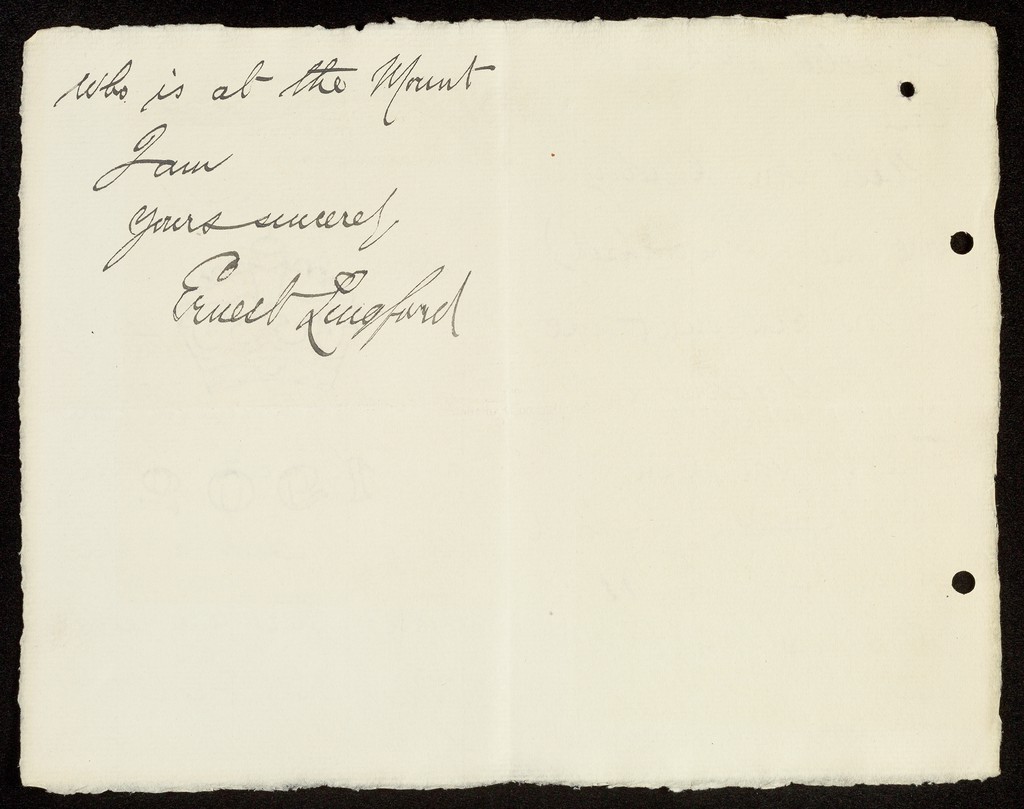 who is at the Mount
I am
Yours sincerely
Ernest Lingford